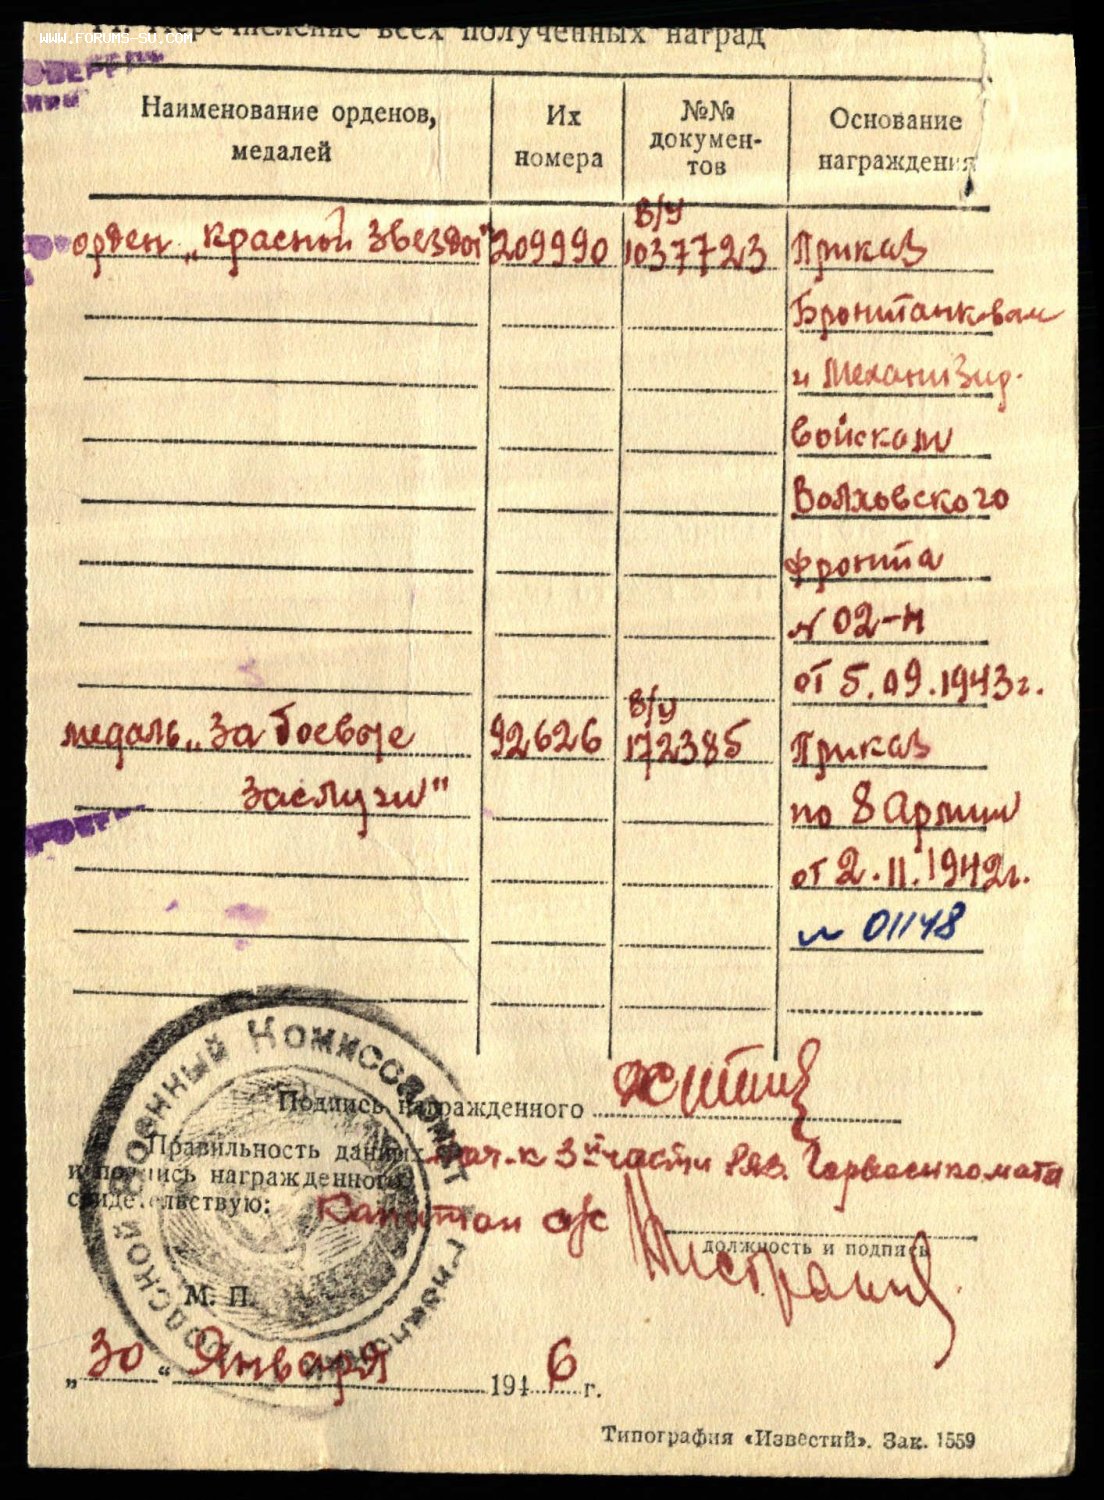 WWW.FORUMS-SU.COM
речисление всех полученных наград
Наименование орденов, медалей
Их номера
№№ докумен-тов
Основание награждения
орден „Красной Звезды" 209990 В/У 1037723 Приказ
Бронитанковам
и Механизир.
войскам
Волховского
фронта
№ 02-Н
от 5.09.1943г.
медаль „За боевые 92626 В/У 172385 Приказ
заслуги" по 8 Армии
от 2.11.1942г.
№ 01148
Подпись награжденного
Правильность данных
и подпись награжденного
свидетельствую:
нач-к 3й части Ряз. Горвоенкомата
Капитан а/с
должность и подпись
М. П.
Военный Комиссариат
„30“ Января 1946 г.
Типография «Известий». Зак. 1559